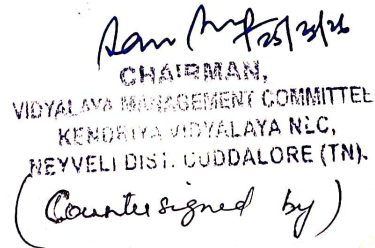 25/3/26
CHAIRMAN,
VIDYALAYA MANAGEMENT COMMITTEE
KENDRIYA VIDYALAYA NLC,
NEYVELI DIST. CUDDALORE (TN).
(Countersigned by)